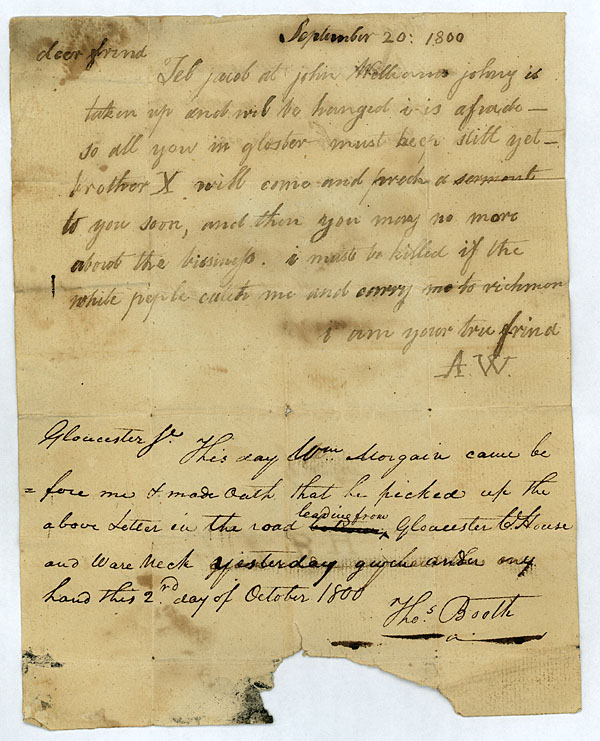 September 20: 1800
deer frind
Tel jacob at john Williams johny is
taken up and wil be hanged i is afrade —
so all you in gloster must keep still yet —
brother X will come and preach a serment
to you soon, and then you may no more
about the bissiness. i must be killed if the
white peple catch me and carry me to richmon
i am your tru frind
A.W.
Gloucester Jr. This day Wm Morgain came be
= fore me & made Oath that he picked up the
above Letter in the road leading from Gloucester Ct House
and Ware Neck yesterday given under my
hand this 2rd. day of October 1800
Thos Booth